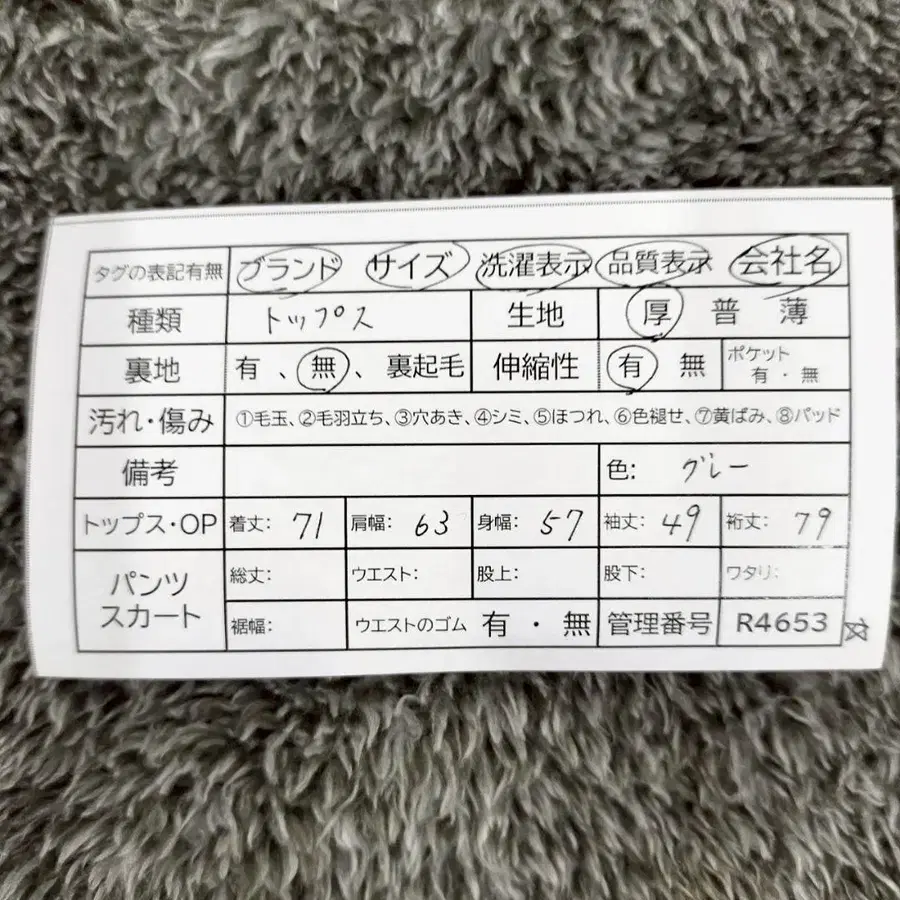 タグの表記有無 ブランド サイズ 洗濯表示 品質表示 会社名
種類 トップス 生地 厚 普 薄
裏地 有 、無 、裏起毛 伸縮性 有 無 ポケット 有 ・ 無
汚れ・傷み ①毛玉、②毛羽立ち、③穴あき、④シミ、⑤ほつれ、⑥色褪せ、⑦黄ばみ、⑧パッド
備考 色: グレー
トップス・OP 着丈: 71 肩幅: 63 身幅: 57 袖丈: 49 裄丈: 79
パンツ スカート 総丈: ウエスト: 股上: 股下: ワタリ:
裾幅: ウエストのゴム 有 ・ 無 管理番号 R4653 ☆